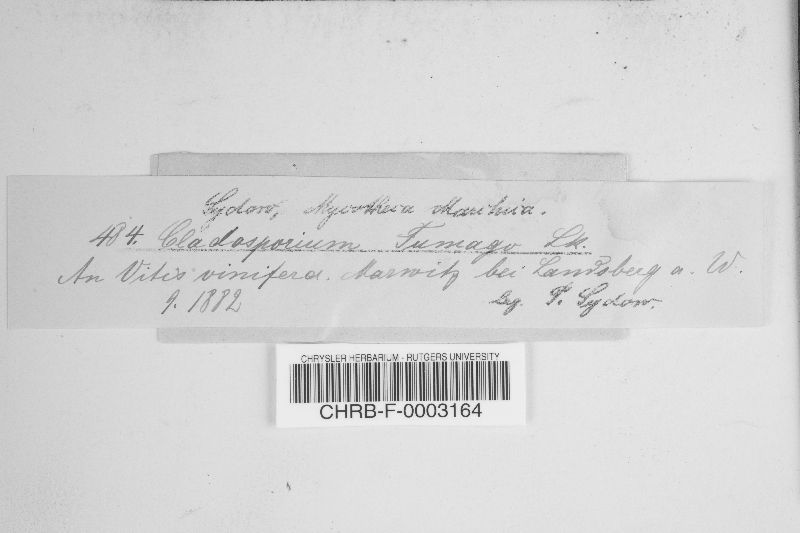 Sydow, Mycotheca Marchica.
484. Cladosporium Fumago Lk.
An Vitis vinifera. Marwitz bei Landsberg a. W.
9. 1882 leg. P. Sydow.
CHRYSLER HERBARIUM - RUTGERS UNIVERSITY
CHRB-F-0003164